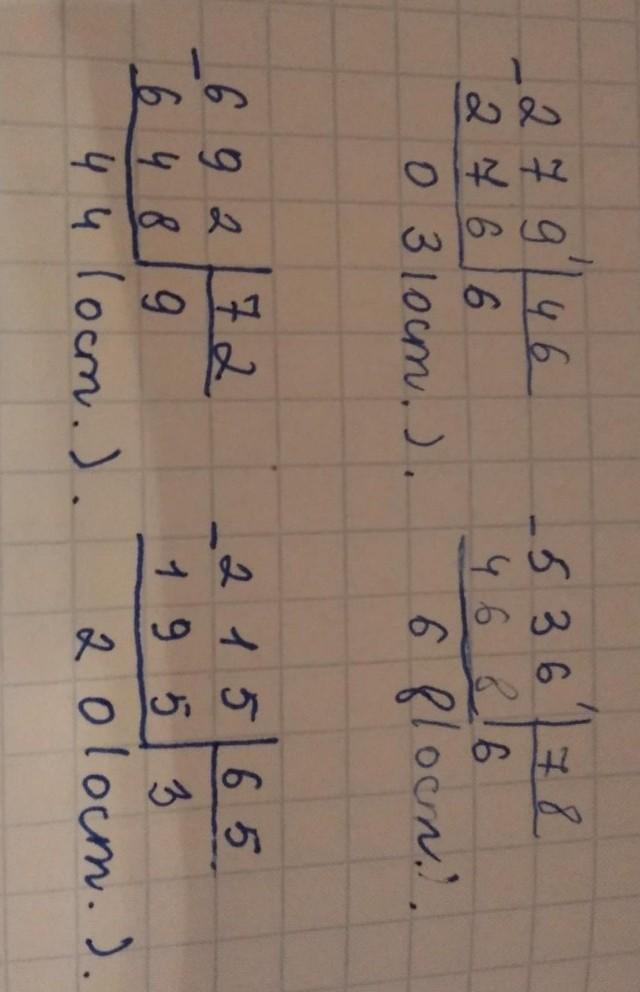 -279' 46
276 6
03 (ост.).
-536' 78
468 6
68 (ост).
-692 72
648 9
44 (ост.).
-215 65
195 3
20 (ост.).